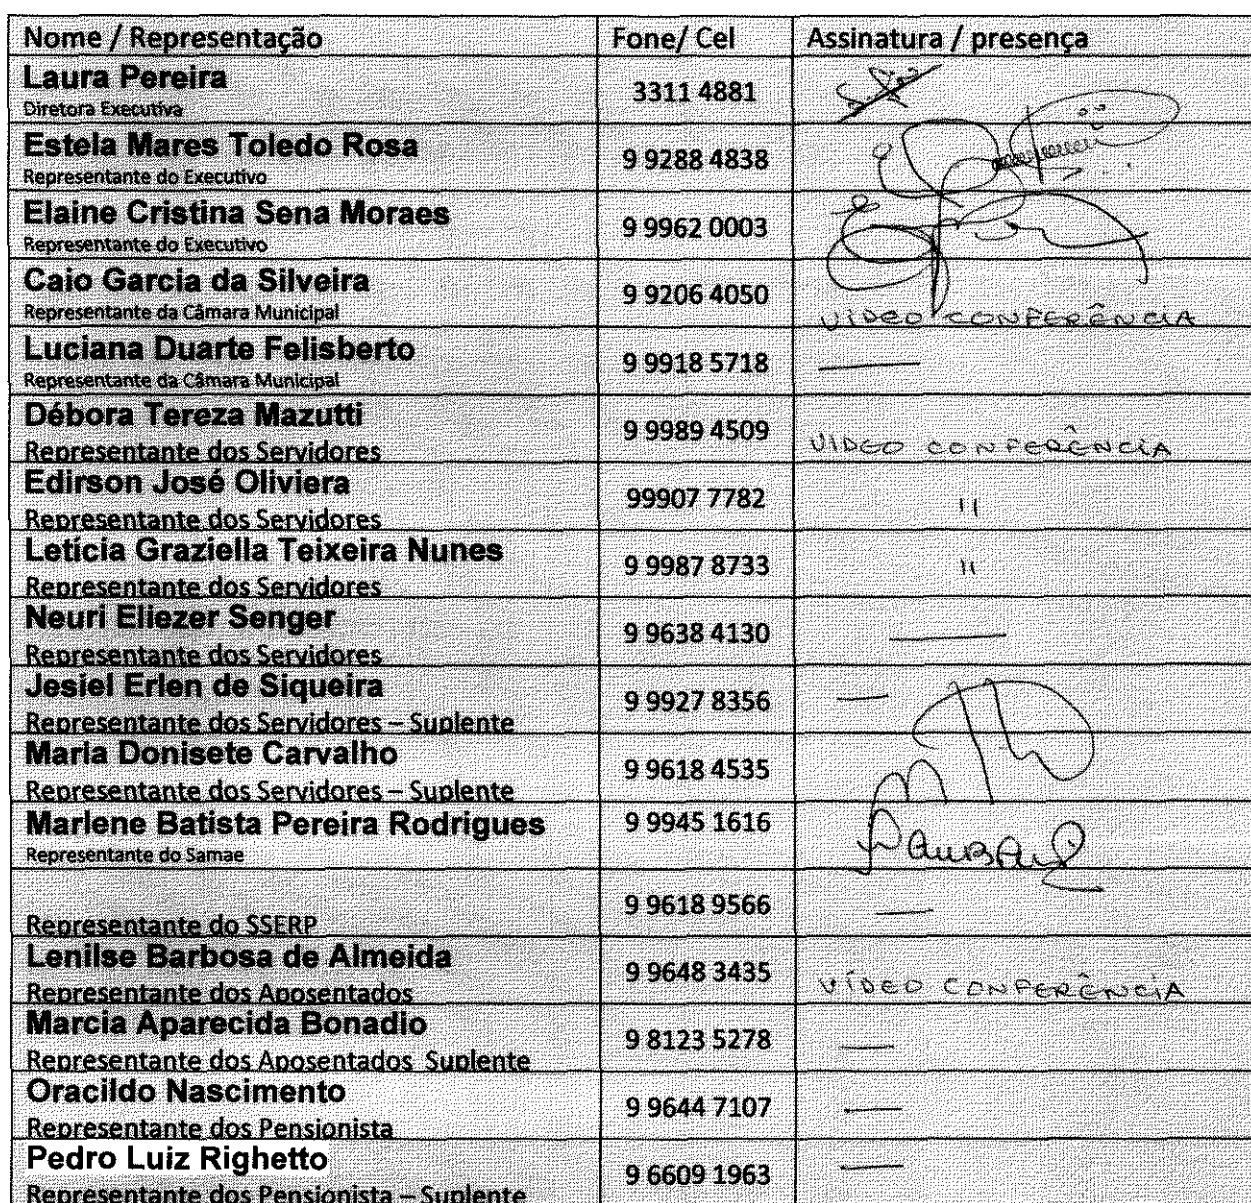 Nome / Representação Fone/ Cel Assinatura / presença
Laura Pereira
Diretora Executiva
3311 4881
Estela Mares Toledo Rosa
Representante do Executivo
9 9288 4838
Elaine Cristina Sena Moraes
Representante do Executivo
9 9962 0003
Caio Garcia da Silveira
Representante da Câmara Municipal
9 9206 4050
VIDEO CONFERÊNCIA
Luciana Duarte Felisberto
Representante da Câmara Municipal
9 9918 5718
—
Débora Tereza Mazutti
Representante dos Servidores
9 9989 4509
VIDEO CONFERÊNCIA
Edirson José Oliviera
Representante dos Servidores
99907 7782
"
Letícia Graziella Teixeira Nunes
Representante dos Servidores
9 9987 8733
"
Neuri Eliezer Senger
Representante dos Servidores
9 9638 4130
—
Jesiel Erlen de Siqueira
Representante dos Servidores – Suplente
9 9927 8356
—
Maria Donisete Carvalho
Representante dos Servidores – Suplente
9 9618 4535
Marlene Batista Pereira Rodrigues
Representante do Samae
9 9945 1616
Representante do SSERP
9 9618 9566
—
Lenilse Barbosa de Almeida
Representante dos Aposentados
9 9648 3435
VÍDEO CONFERÊNCIA
Marcia Aparecida Bonadio
Representante dos Aposentados Suplente
9 8123 5278
—
Oracildo Nascimento
Representante dos Pensionista
9 9644 7107
—
Pedro Luiz Righetto
Representante dos Pensionista – Suplente
9 6609 1963
—